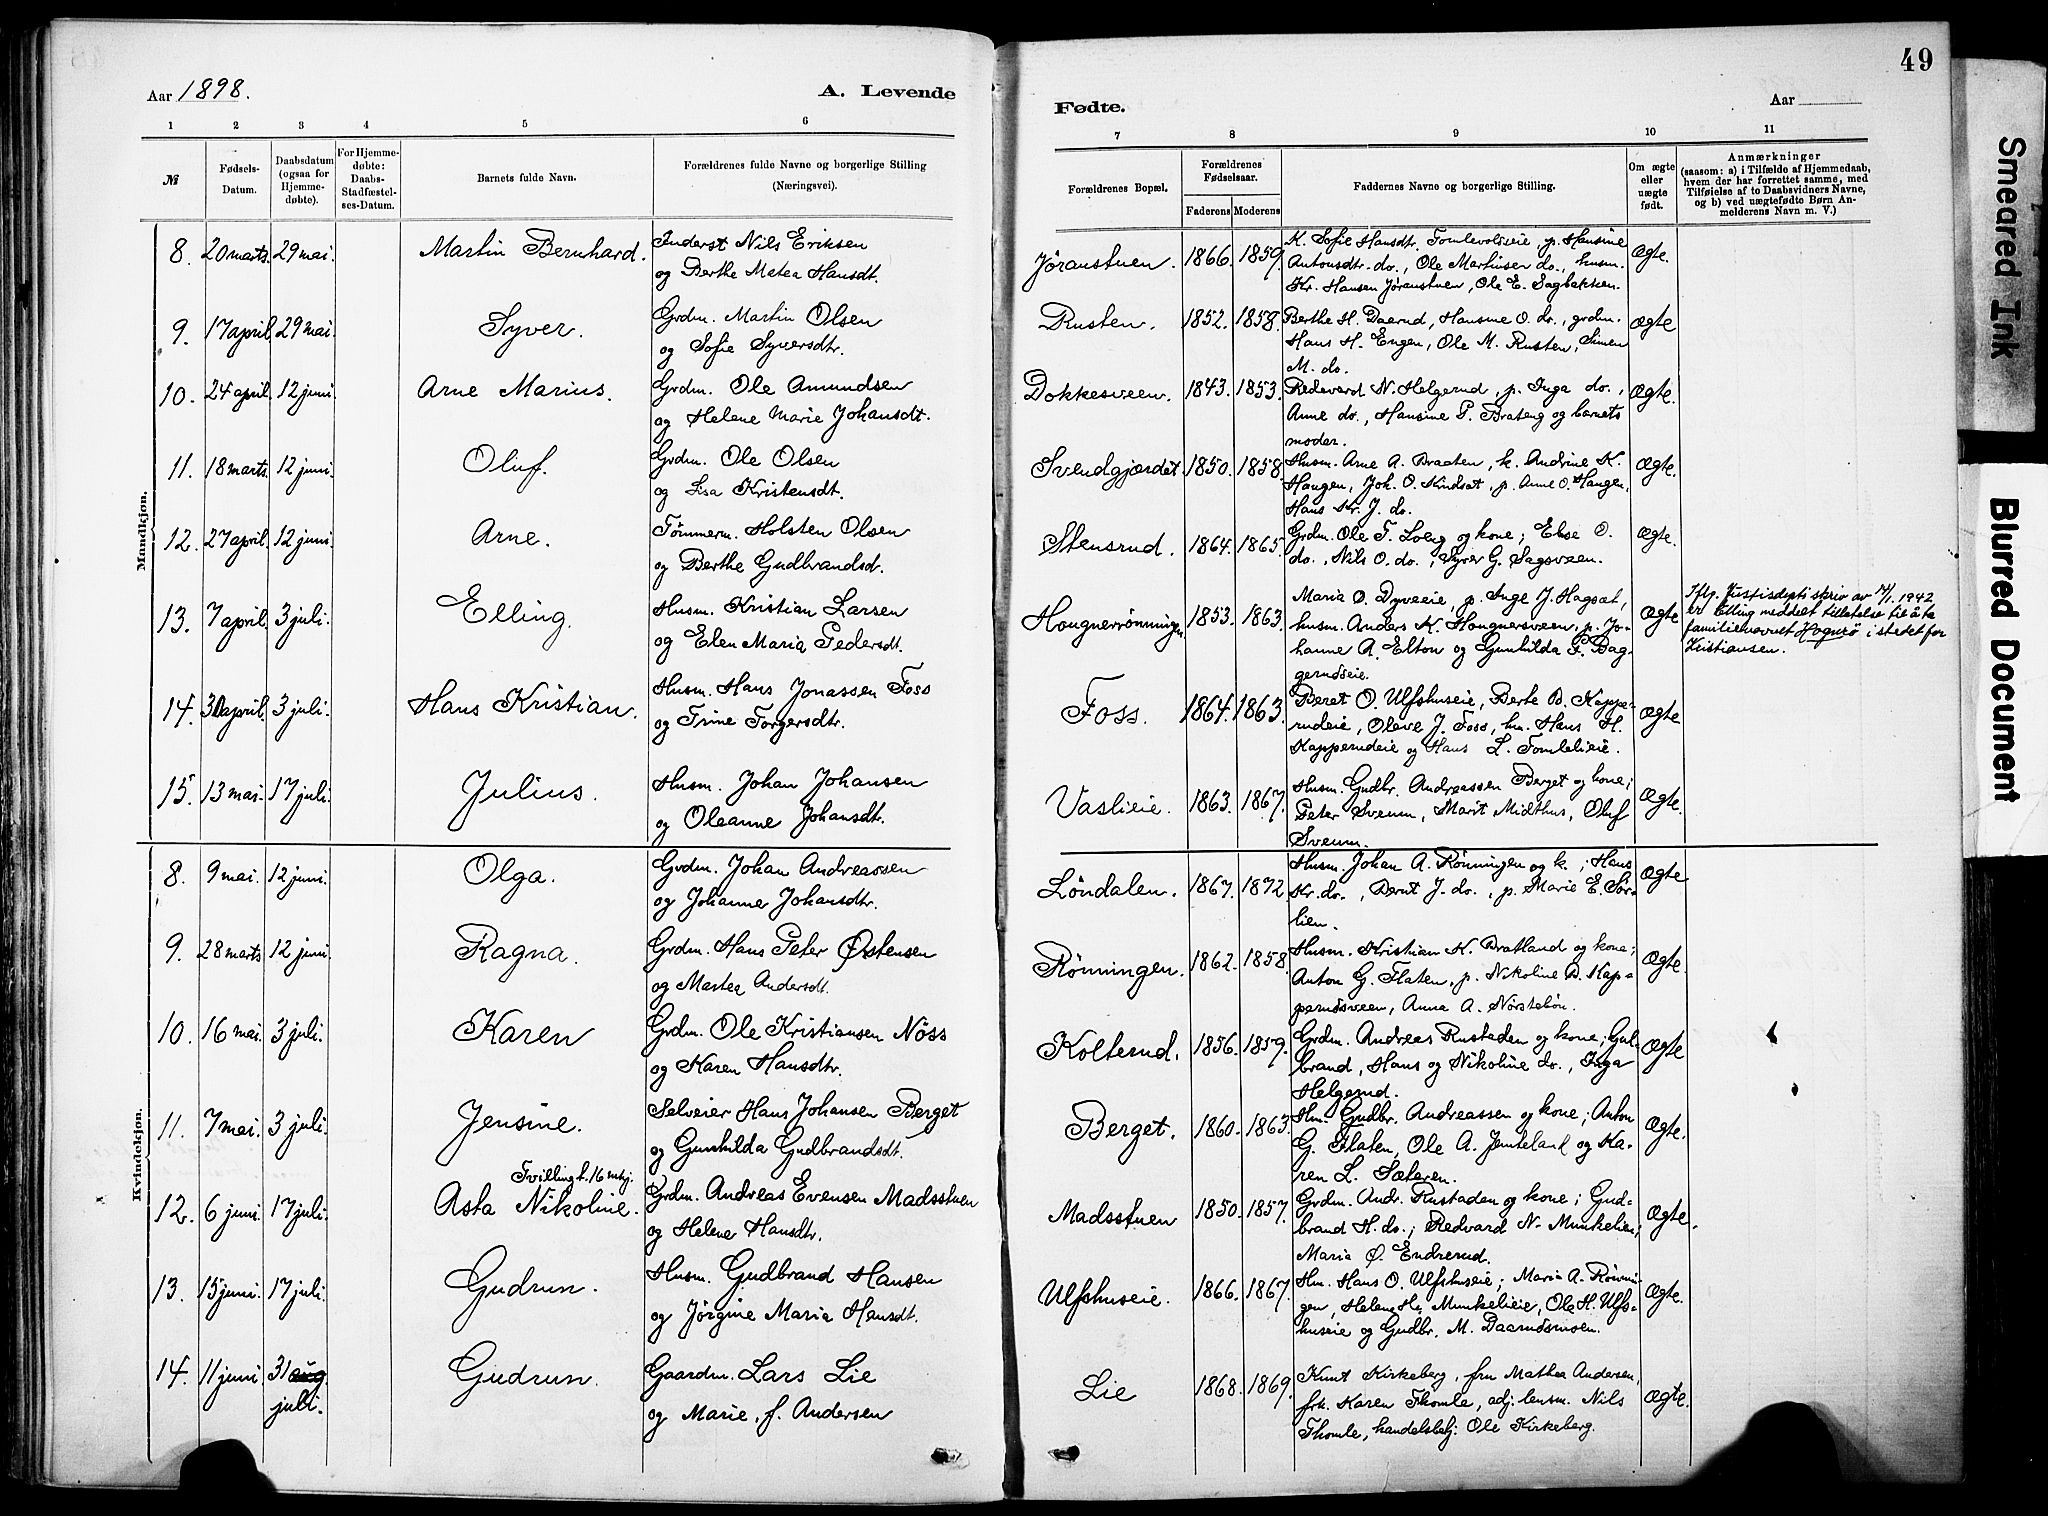 49
Aar 1898.
A. Levende
Fødte.
Aar
1 2 3 4 5 6
7 8 9 10 11
№
Fødsels-
Datum.
Daabsdatum
(ogsaa for
Hjemme-
døbte).
For Hjemme-
døbte:
Daabs-
Stadfæstel-
ses-Datum.
Barnets fulde Navn.
Forældrenes fulde Navne og borgerlige Stilling
(Næringsvei).
Forældrenes Bopæl.
Forældrenes
Fødselsaar.
Faderens Moderens
Faddernes Navne og borgerlige Stilling.
Om ægte
eller
uægte
født.
Anmærkninger
(saasom: a) i Tilfælde af Hjemmedaab,
hvem der har forrettet samme, med
Tilføielse af to Daabsvidners Navne,
og b) ved uægtefødte Børn An-
melderens Navn m. V.)
Mandkjøn.
8. 20 marts. 29 mai. Martin Bernhard. Inderst Nils Eriksen
og Berthe Matea Hansdt.
Jøranstuen. 1866. 1859. K. Sofie Hansdt. Tomlevolseie, p. Hansine
Antonsdtr. do., Ole Martinsen do., husm.
Kr. Hansen Jøranstuen, Ole E. Sagbakken. Ægte.
9. 17 april. 29 mai. Syver. Grdm. Martin Olsen
og Sofie Syversdtr.
Rusten. 1852. 1858. Berthe H. Daarud, Hansine O. do., grdm.
Hans H. Engen, Ole M. Rusten, Simen
M. do. Ægte
10. 24 april. 12 juni. Arne Marius. Grdm. Ole Amundsen
og Helene Marie Johansdt.
Dokkesveen. 1843. 1853. Redevard N. Helgerud, p. Inga do.,
Anne do., Hansine P. Brateng og barnets
moder. Ægte.
11. 18 marts. 12 juni. Oluf. Grdm. Ole Olsen
og Lisa Kristensdt.
Svendgjerdet. 1850. 1858. Husm. Arne A. Braaten, k. Andrine K.
Haugen, Joh. O. Kindsæt, p. Anne O. Haugen,
Hans Kr. J. do. Ægte.
12. 27 april. 12 juni. Arne. Tømmerm. Holsten Olsen
og Berthe Gudbrandsdt.
Stensrud. 1864. 1865. Grdm. Ole T. Loeng og kone; Else O.
do., Nils O. do., Syver G. Sagsveen. Ægte.
13. 7 april. 3 juli. Elling. Husm. Kristian Larsen
og Elen Maria Pedersdt.
Hougnerrønningen. 1853. 1863. Maria O. Dyveeie, p. Inge J. Hagsæt,
husm. Anders K. Hougnersveen, p. Jo-
hanne A. Elton og Gunhilda P. Bag-
gerudseie. Ægte
Iflg. Justisdepts skriv av 1942
er Elling meddelt tillatelse til å ta
familienavnet Hognerø i stedet for
Kristiansen.
14. 30 april. 3 juli. Hans Kristian. Husm. Hans Jonassen Foss
og Trine Torgersdtr.
Foss. 1864. 1863. Beret O. Ulfshuseie, Berte B. Kappe-
rudeie, Oleve J. Foss, hm. Hans H.
Kapperudeie og Hans L. Tomlelieie. Ægte
15. 13 mai. 17 juli. Julius. Husm. Johan Johansen
og Oleanne Johansdt.
Vaslieie. 1863. 1867. Husm. Gudbr. Andreassen Berget og kone;
Peter Sveum, Marit Midthus, Oluf
Sveum. Ægte.
Kvindekjøn.
8. 9 mai. 12 juni. Olga. Grdm. Johan Andreassen
og Johanne Johansdtr.
Løndalen. 1867. 1872. Husm. Johan A. Rønningen og k.; Hans
Kr. do., Bernt J. do., p. Marie E. Sør-
lien. Ægte
9. 28 marts 12 juni. Ragna. Grdm. Hans Peter Østensen
og Martea Andersdt.
Rønningen. 1862. 1858. Husm. Kristian K. Bratland og kone;
Anton G. Flaten, p. Nikoline B. Kap-
perudsveen, Anna A. Nørstebøn. Ægte.
10. 16 mai. 3 juli. Karen Grdm. Ole Kristiansen Nöss
og Karen Hansdtr.
Kolterud. 1856. 1859. Grdm. Andreas Rustaden og kone; Gul-
brand, Hans og Nikoline do., Inga
Helgerud. Ægte
11. 7 mai. 3 juli. Jensine. Selveier Hans Johansen Berget
og Gunhilda Gudbrandsdt.
Berget. 1860. 1863. Hm. Gudbr. Andreassen og kone; Anton
G. Flaten, Ole A. Jemteland og Ka-
ren L. Sæteren. Ægte.
Tvilling t. 16 mkj.
12. 6 juni. 17 juli. Asta Nikoline. Grdm. Andreas Evensen Madsstuen
og Helene Hansdtr.
Madsstuen 1850. 1857. Grdm. Andr. Rustaden og kone; Gud-
brand H. do.; Redvard N. Munkelien;
Maria Ø. Endrerud. Ægte.
13. 15 juni. 17 juli. Gudrun. Husm. Gudbrand Hansen
og Jørgine Maria Hansdt.
Ulfshuseie. 1866. 1867. Hm. Hans O. Ulfshuseie; Maria A. Rønnin-
gen, Helene H. Munkelieie, Ole H. Ulfs-
huseie og Gudbr. M. Daarudsmoen. Ægte.
14. 11 juni. 31 aug. juli. Gudrun. Gaardm. Lars Lie
og Marie, f. Andersen
Lie 1868. 1869. Knut Kirkeberg, fru Mathea Andersen,
frk. Karen Thomle, adj. lensm. Nils
Thomle, handelsbetj. Ole Kirkeberg. Ægte.
Smeared Ink
Blurred Document